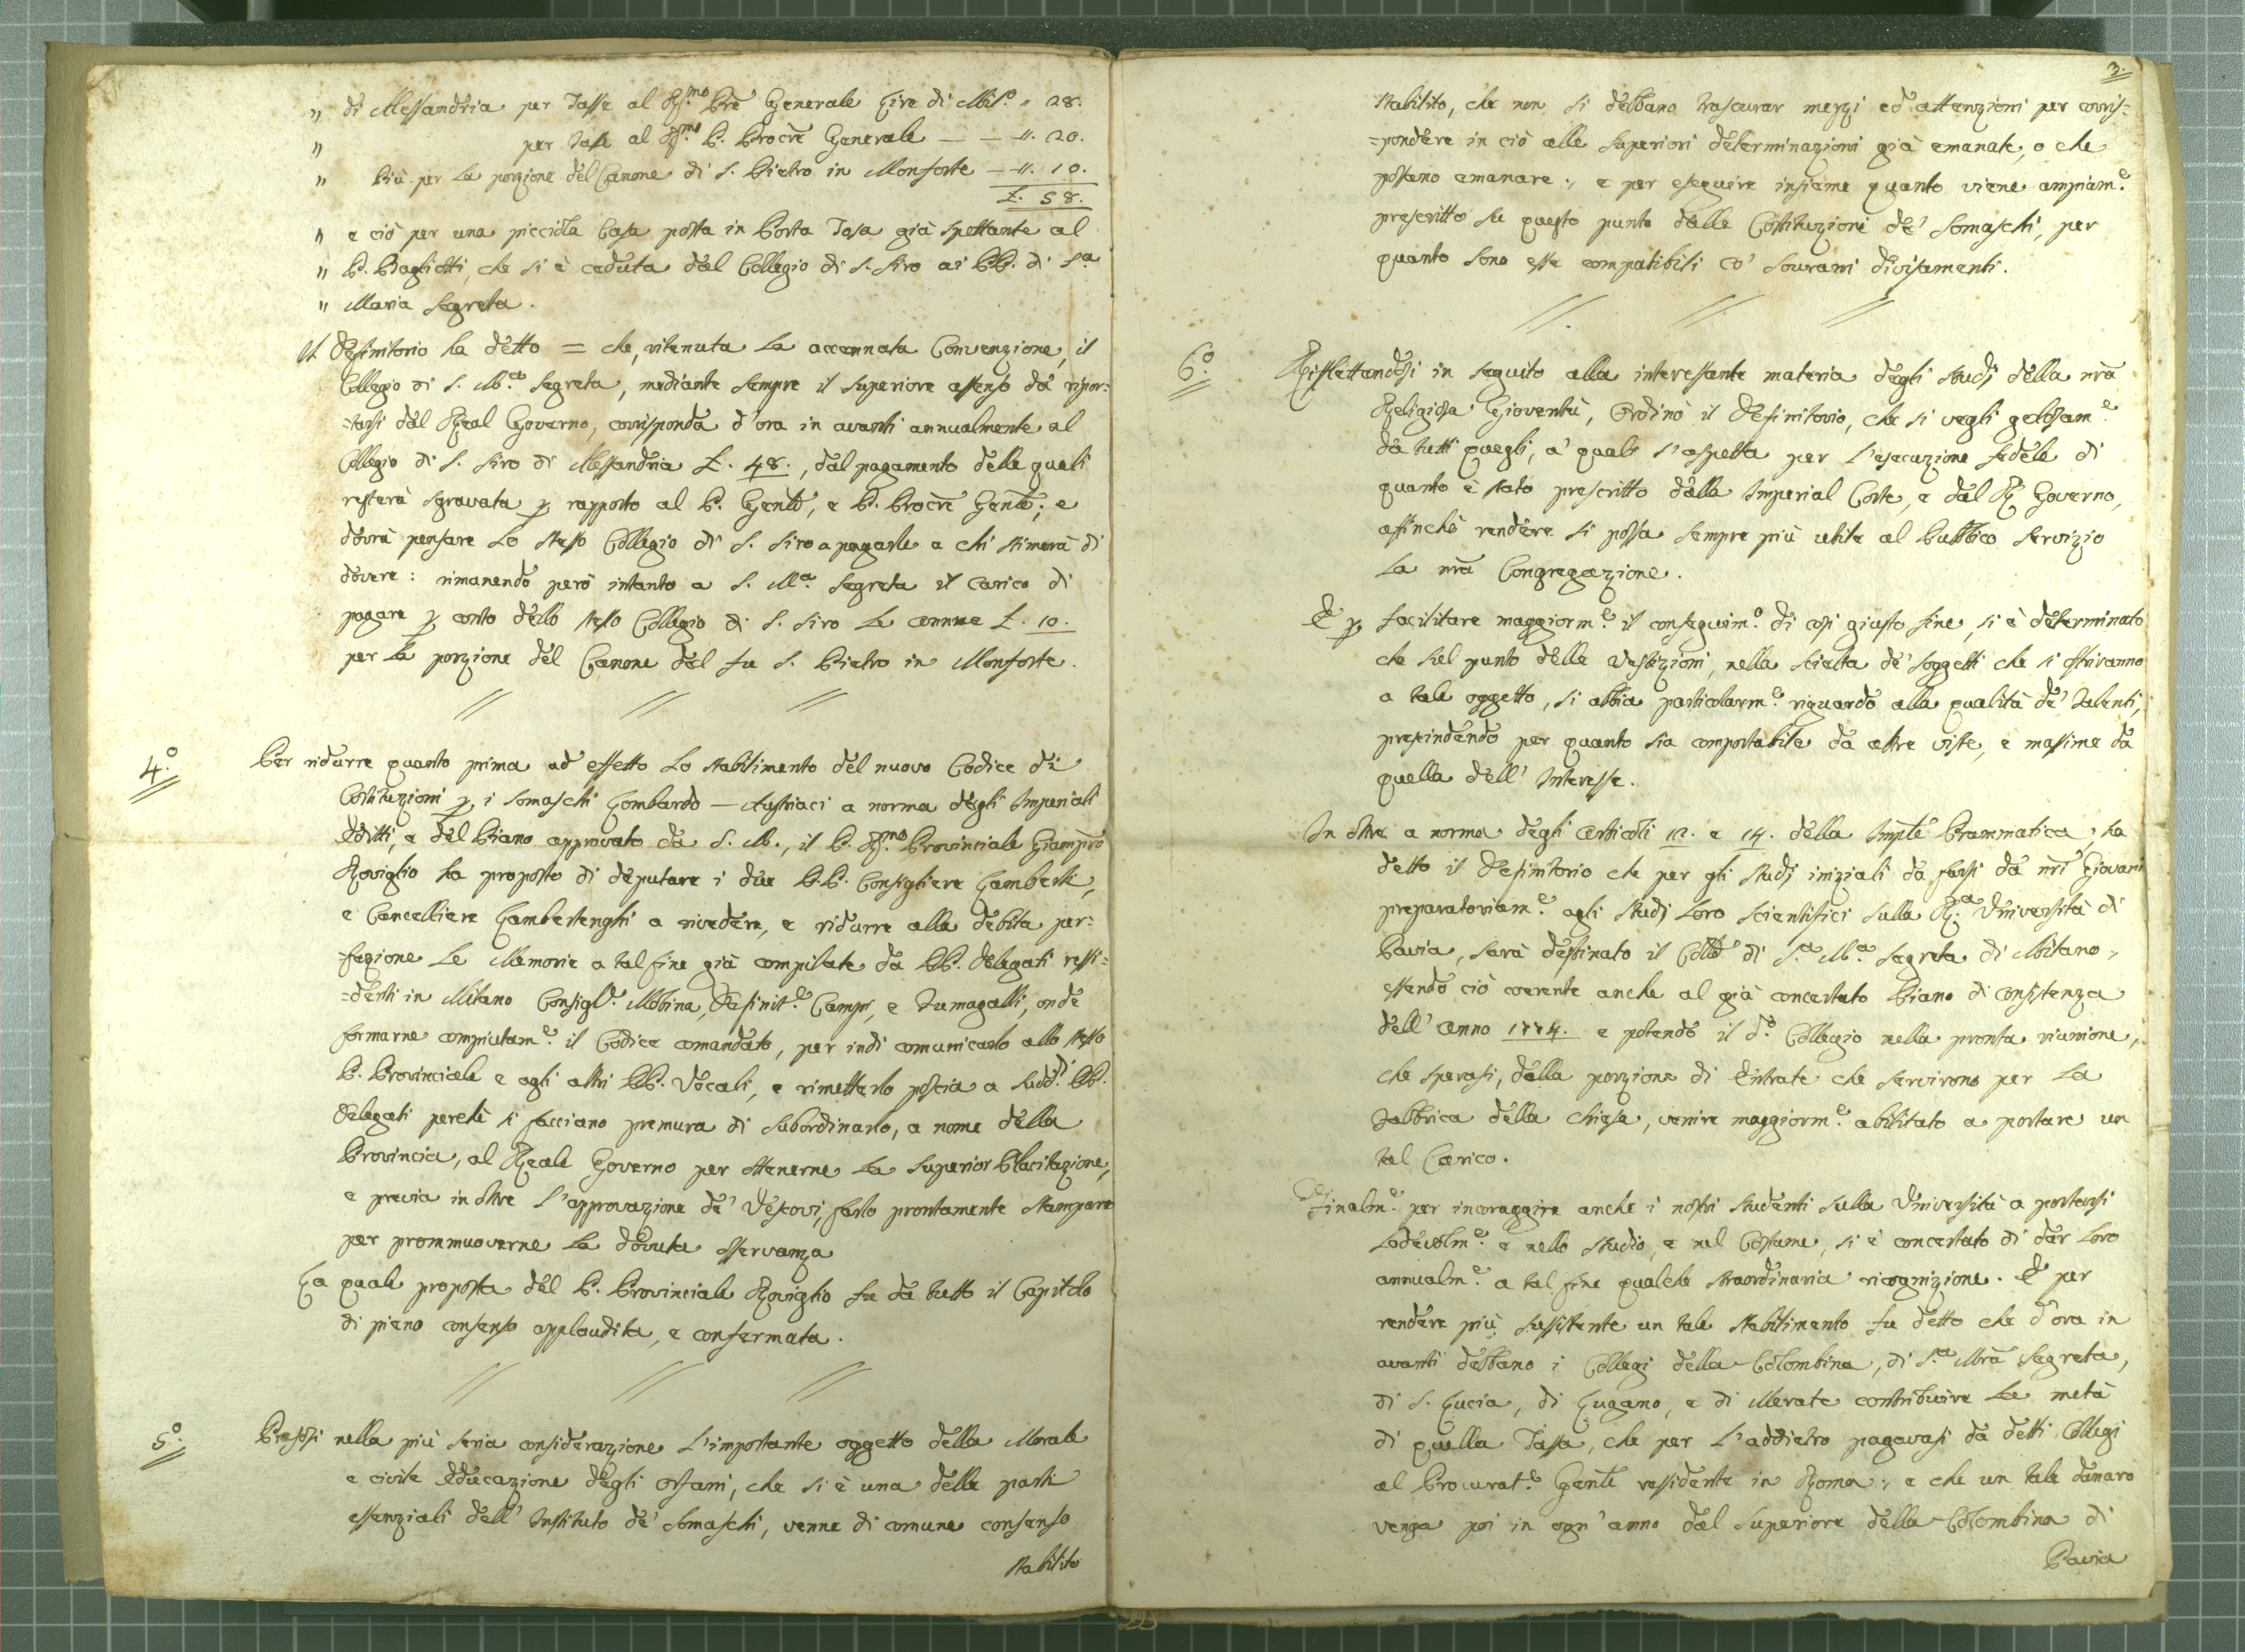 " di Alessandria per Tasse al R.mo Pre Generale Lire di Mil.o " 28.
" per Tasse al R.mo P. Procre Generale — — " 20.
" Più per la porzione del Canone di S. Pietro in Monforte — " 10.
L. 58.
" e ciò per una picciola Casa posta in Porta Tosa già spettante al
" P. Pagliotti, che si è ceduta dal Collegio di S. Siro ai PP. di S.a
" Maria Segreta.
Il Definitorio ha detto = che, ritenuta la accennata Convenzione, il
Collegio di S. M.a Segreta, mediante sempre il superiore assenso da ripor=
=tarsi dal Real Governo, corrisponda d'ora in avanti annualmente al
Collegio di S. Siro di Alessandria L. 48., dal pagamento delle quali
resterà sgravata p rapporto al P. Genle, e P. Procre Genle; e
dovrà pensare lo stesso Collegio di S. Siro a pagarle a chi stimerà di
dovere: rimanendo però intanto a S. M.a Segreta il carico di
pagare p conto dello stesso Collegio di S. Siro le annue L. 10.
per la porzione del Canone del fu S. Pietro in Monforte.
4.o Per ridurre quanto prima ad effetto lo stabilimento del nuovo Codice di
Costituzioni p i Somaschi Lombardo — Austriaci a norma degli Imperiali
Editti, e del Piano approvato da S. M., il P. R.mo Provinciale Giampro
Roviglio ha proposto di deputare i due P.P. Consigliere Lamberti,
e Cancelliere Lambertenghi a rivedere, e ridurre alla debita per=
=fezione le Memorie a tal fine già compilate da PP. Delegati resi=
=denti in Milano Consigl.e Molina, Definit.e Campi, e Fumagalli, onde
formarne compiutam.e il Codice comandato, per indi comunicarlo allo stesso
P. Provinciale e agli altri PP. Vocali, e rimetterlo poscia a sudd.i PP.
Delegati perchè si facciano premura di subordinarlo, a nome della
Provincia, al Reale Governo per ottenerne la superior Placitazione,
e previa in oltre l'approvazione de' Vescovi, farlo prontamente stampare
per prommuoverne la dovuta osservanza
La quale proposta del P. Provinciale Roviglio fu da tutto il Capitolo
di pieno consenso applaudita, e confermata.
5.o Presosi nella più seria considerazione l'importante oggetto della Morale
e civile Educazione degli orfani, che si è una delle parti
essenziali dell'Instituto de' Somaschi, venne di comune consenso
stabilito
3.
stabilito, che non si debbano trascurar mezzi ed attenzioni per corris=
=pondere in ciò alle superiori determinazioni già emanate, o che
possano emanare; e per eseguire insieme quanto viene ampiam.e
prescritto su questo punto dalle Costituzioni de' Somaschi, per
quanto sono esse compatibili co' sovrani divisamenti.
6.o Riflettendosi in seguito alla interessante materia degli studj della nra
Religiosa Gioventù, ordinò il Definitorio, che si vegli gelosam.e
da tutti quegli, a' quali s'aspetta per l'esecuzione fedele di
quanto è stato prescritto dalla Imperial Corte, e dal R. Governo,
affinchè rendere si possa sempre più utile al Pubblico servizio
la nra Congregazione.
E p facilitare maggiorm.e il conseguim.o di così giusto fine, si è determinato
che sul punto delle Vestizioni, nella scielta de' soggetti che si offriranno
a tale oggetto, si abbia particolarm.e riguardo alla qualità de' talenti,
prescindendo per quanto sia comportabile da altre viste, e massime da
quella dell'Interesse.
In oltre a norma degli Articoli 12. e 14. della Imple Prammatica, ha
detto il Definitorio che per gli studj iniziali da farsi da nri Giovani
preparatoriam.e agli studj loro scientifici sulla R.a Università di
Pavia, sarà destinato il Collo di S.a M.a Segreta di Milano,
essendo ciò coerente anche al già concertato Piano di consistenza
dell'anno 1774. e potendo il d.o Collegio nella pronta riunione,
che sperasi, della porzione di Entrate che servirono per la
Fabbrica della Chiesa, venire maggiorm.e abilitato a portare un
tal Carico.
Finalm.e per incoraggire anche i nostri studenti sulla Università a portarsi
lodevolm.e e nello studio, e nel Costume, si è concertato di dar loro
annualm.e a tal fine qualche straordinaria ricognizione. E per
rendere più sussistente un tale stabilimento fu detto che d'ora in
avanti debbano i Collegi della Colombina, di S.a Mra Segreta,
di S. Lucia, di Lugano, e di Merate contribuire la metà
di quella Tassa, che per l'addietro pagavasi da detti Collegi
al Procurat.e Genle residente in Roma; e che un tale danaro
venga poi in ogn'anno dal Superiore della Colombina di
Pavia